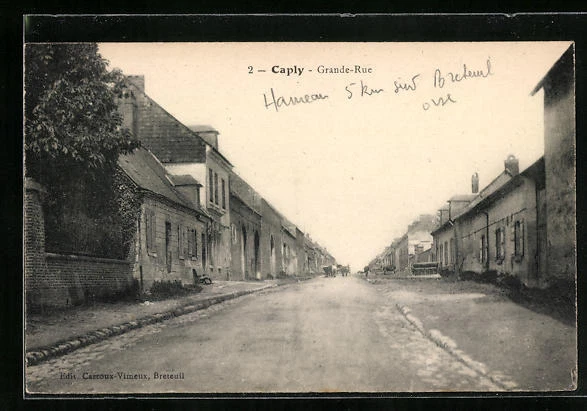 2 – Caply - Grande-Rue
Hameau 5 km sud Breteuil
oise
Edit. Carroux-Vimeux, Breteuil